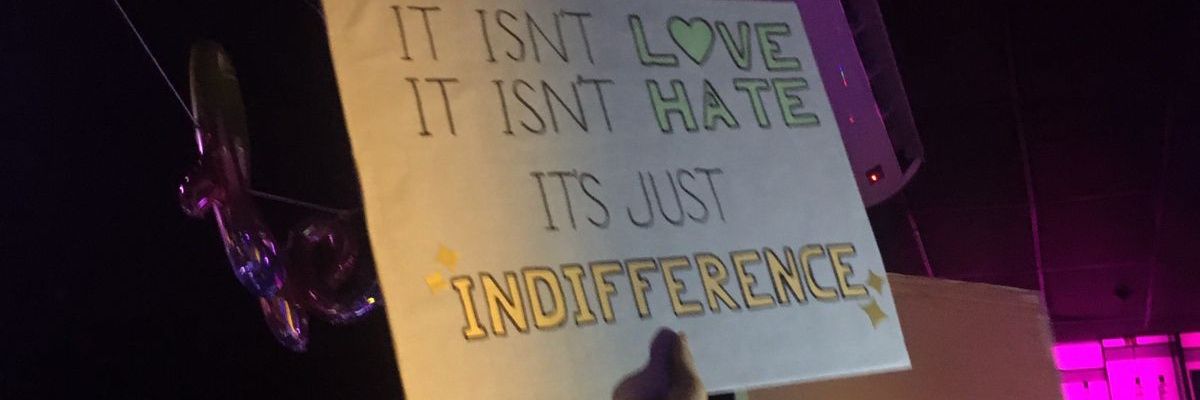 IT ISN'T LOVE
IT ISN'T HATE
IT'S JUST
INDIFFERENCE